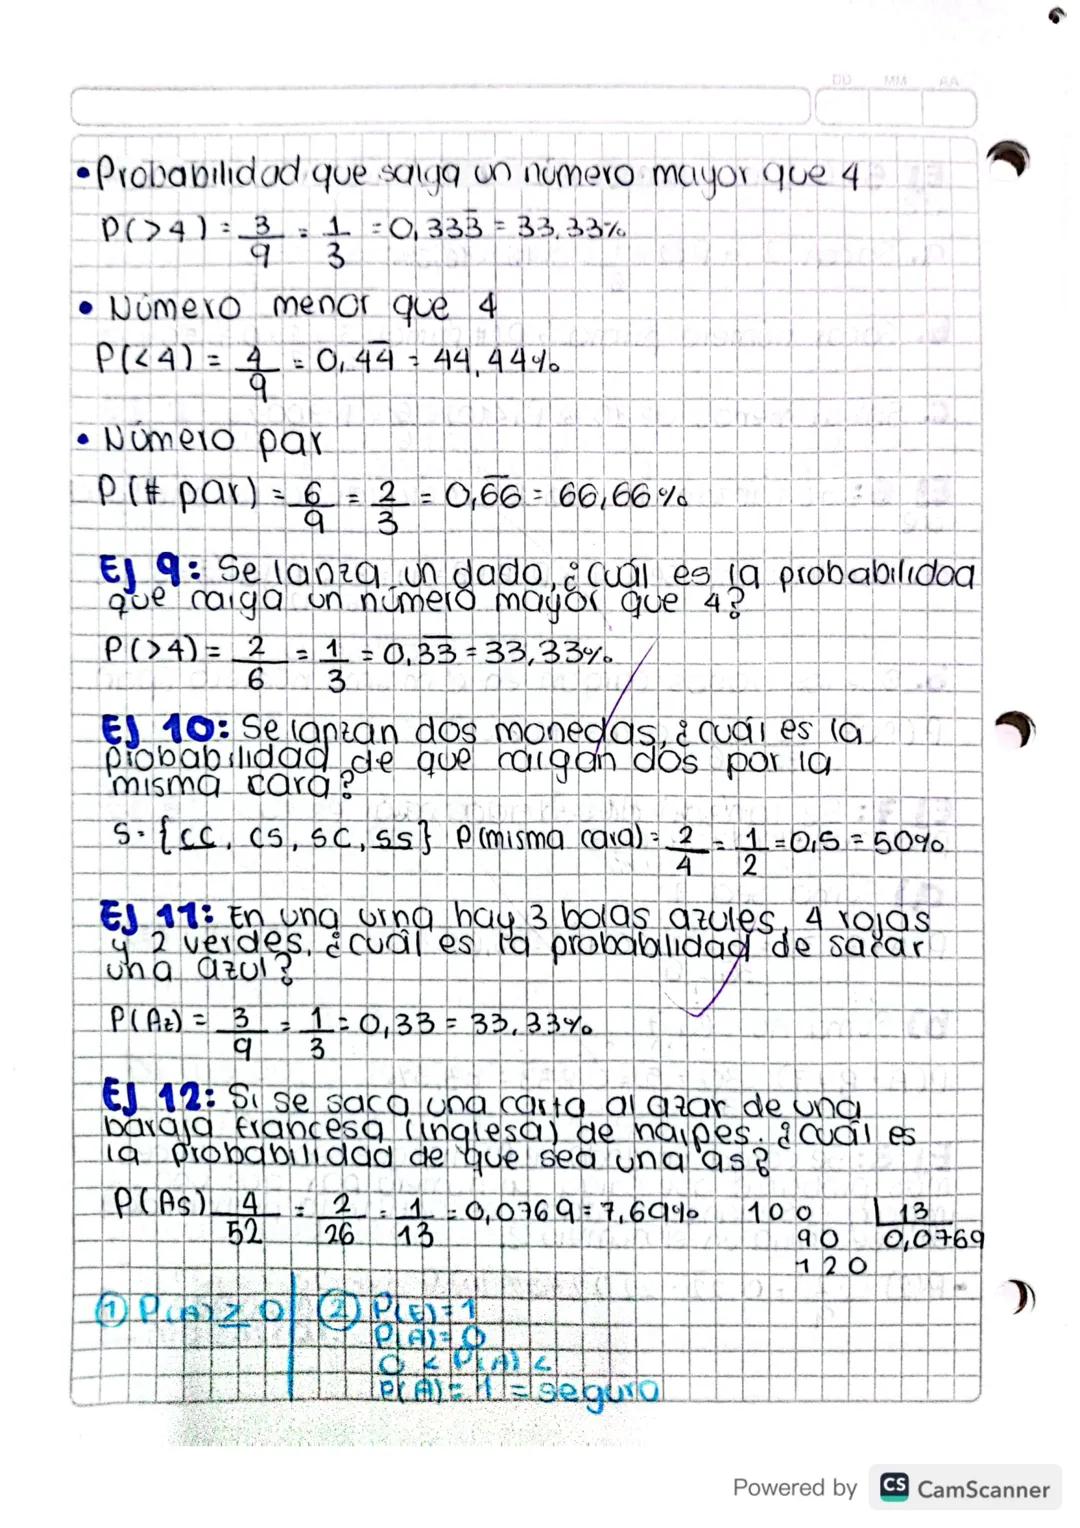 DD MM AA
• Probabilidad que salga un número mayor que 4
P(>4) = 3/9 = 1/3 = 0,333̅ = 33,33%
• Número menor que 4
P(<4) = 4/9 = 0,44̅ = 44,44%
• Número par
P(# par) = 6/9 = 2/3 = 0,6̅6̅ = 66,66%
EJ 9: Se lanza un dado, ¿cuál es la probabilidad
que caiga un número mayor que 4?
P(>4) = 2/6 = 1/3 = 0,3̅3̅ = 33,33%
EJ 10: Se lanzan dos monedas, ¿cuál es la
probabilidad de que caigan dos por la
misma cara?
S = {CC, CS, SC, SS} P(misma cara) = 2/4 = 1/2 = 0,5 = 50%
EJ 11: En una urna hay 3 bolas azules, 4 rojas
y 2 verdes, ¿cuál es la probabilidad de sacar
una azul?
P(Az) = 3/9 = 1/3 = 0,33 = 33,33%
EJ 12: Si se saca una carta al azar de una
baraja francesa (inglesa) de naipes. ¿cuál es
la probabilidad de que sea una as?
P(As) 4/52 = 2/26 = 1/13 = 0,0769 = 7,69% 100 13
90 0,0769
120
① P(A) ≥ 0 ② P(E) = 1
P(A) = 0
0 < P(A) <
P(A) = 1 = seguro
Powered by CS CamScanner